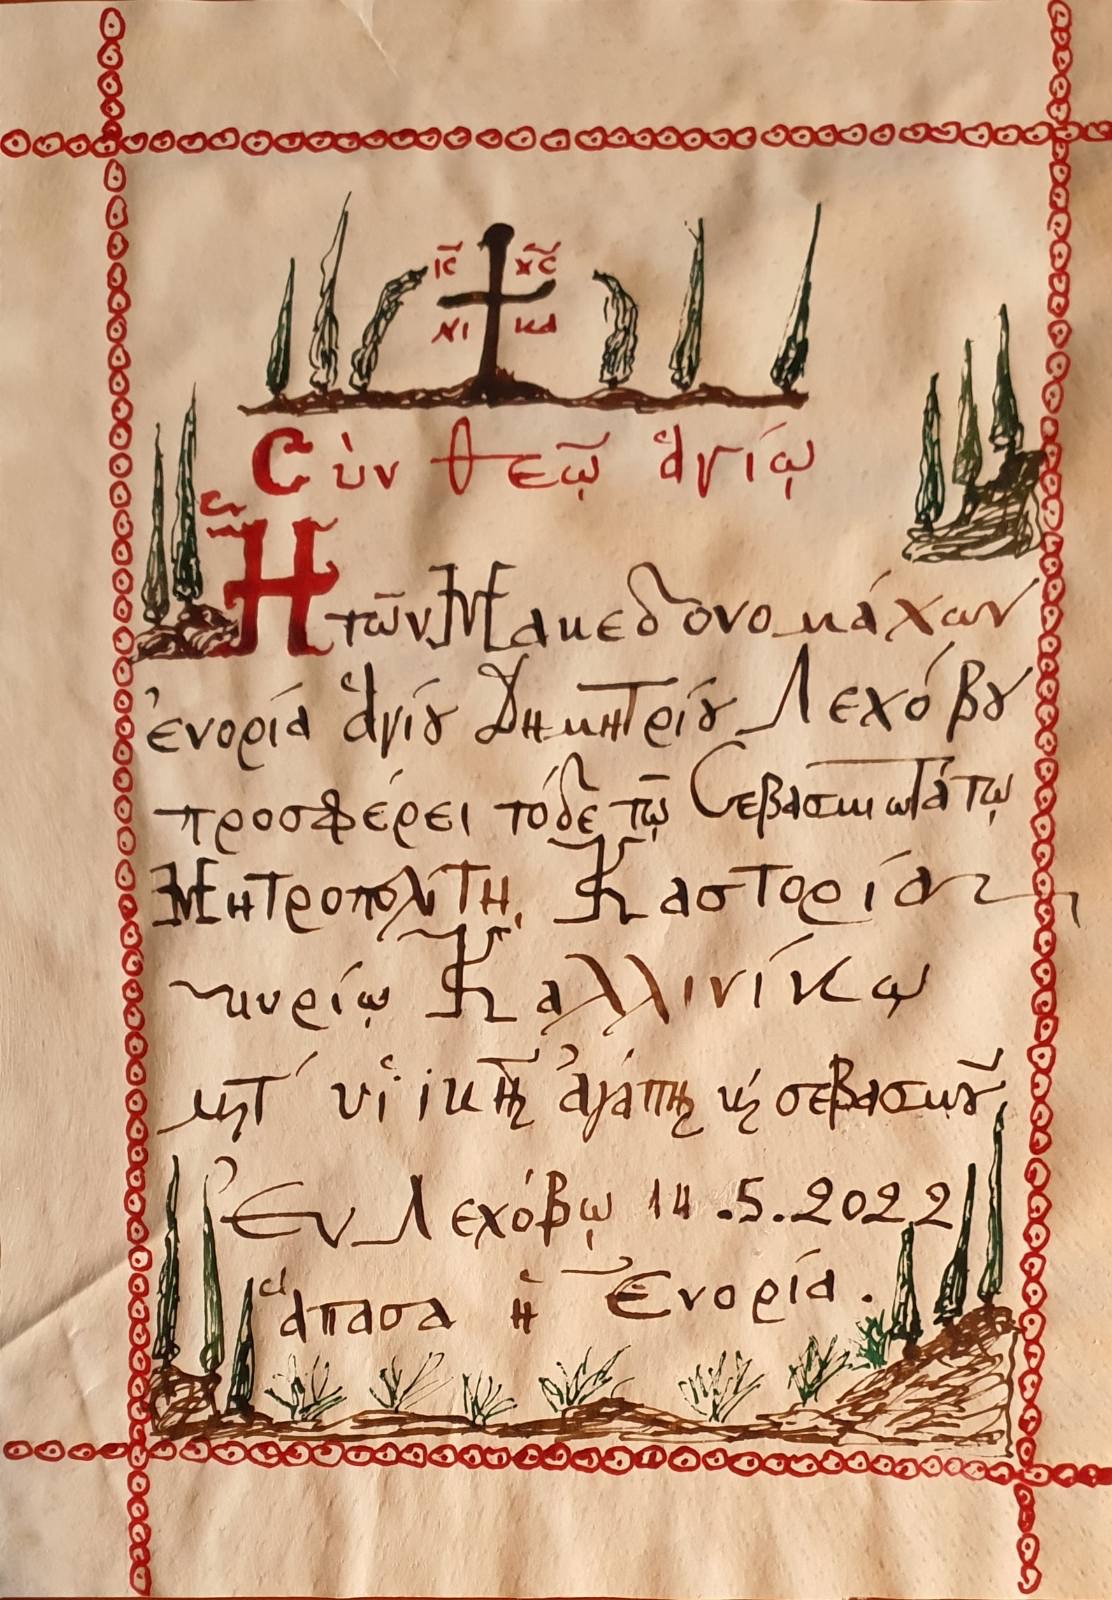 ΙC ΧC
ΝΙ ΚΑ
Cὺν Θεῷ ἁγίῳ
Ἡ τῶν Μακεδονομάχων
ἐνορία Ἁγίȣ Δημητρίȣ Λεχόβȣ
προσφέρει τόδε τῷ Cεβασμιωτάτῳ
Μητροπολίτῃ Καστορίας
κυρίῳ Καλλινίκῳ
μετ' υἱϊκῆς ἀγάπης κ' σεβασμοῦ
Ἐν Λεχόβῳ 14.5.2022
ἅπασα ἡ Ἐνορία.